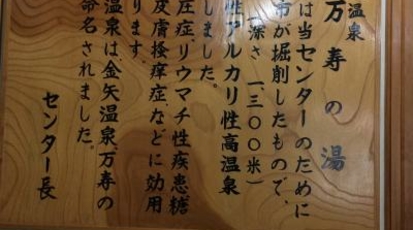 温泉
万寿の湯
は当センターのために
市が掘削したもので、
(深さ 一、三〇〇米)
性アルカリ性高温泉
しました。
圧症リウマチ性疾患糖
皮膚掻痒症などに効用
ります。
温泉は、金矢温泉、万寿の
命名されました。
センター長